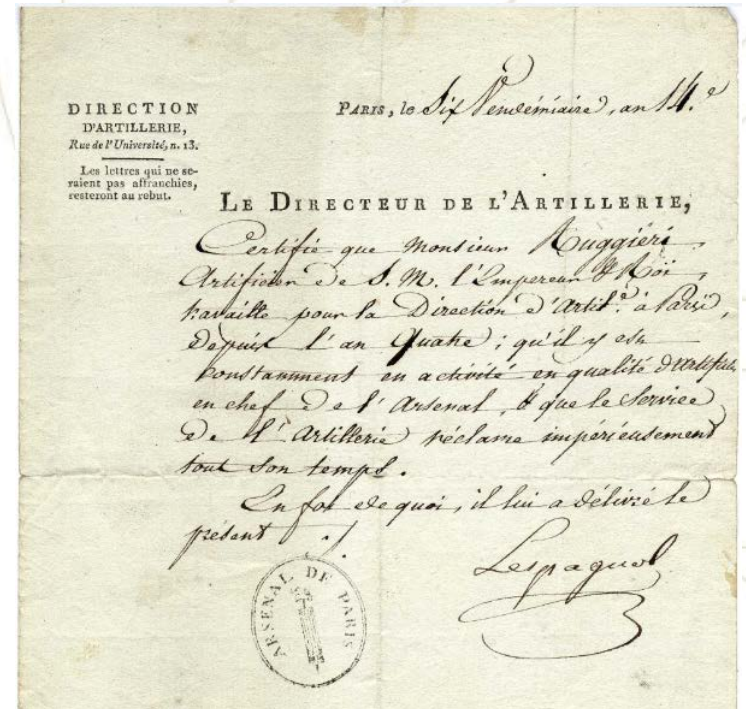 DIRECTION
D'ARTILLERIE,
Rue de l'Université, n. 13.
Les lettres qui ne se-
raient pas affranchies,
resteront au rebut.
PARIS, le Six Vendémiaire, an 14.e
LE DIRECTEUR DE L'ARTILLERIE,
Certifie que Monsieur Ruggiéri
Artificier de S. M. l'Empereur & Roi,
travaille pour la Direction d'Artil.e à Paris,
depuis l'an Quatre ; qu'il y est
constamment en activité en qualité d'Artificier
en chef de l'Arsenal, & que le Service
de l'Artillerie réclame impérieusement
tout son temps.
En foi de quoi, il lui a délivré le
présent ./.
Lespagnol
ARSENAL DE PARIS